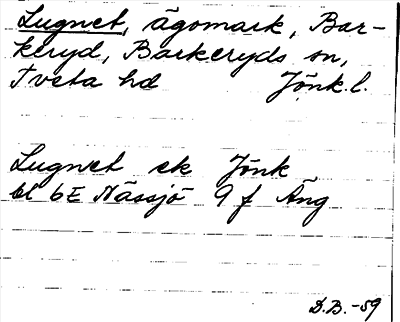 Lugnet, ägomark, Bar-
keryd, Barkeryds sn,
Tveta hd Jönk.l.
Lugnet ek Jönk
bl 6E Nässjö 9f Äng
D.B.-59